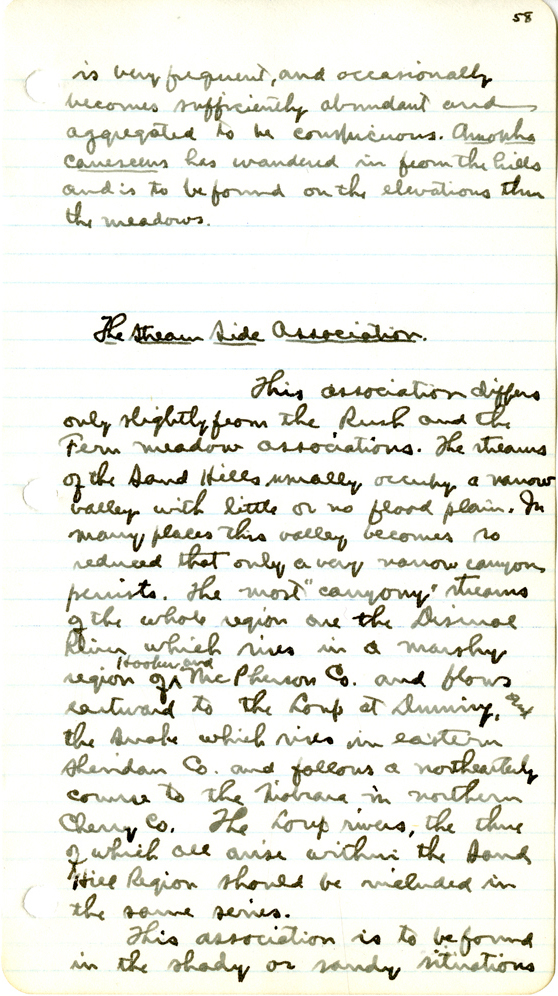 58
is very frequent, and occasionally
becomes sufficiently abundant and
aggregated to be conspicuous. Amorpha
canescens has wandered in from the hills
and is to be found on the elevations thru
the meadows.
The Stream Side Association.
This association differs
only slightly from the Rush and the
Fern meadow associations. The streams
of the Sand Hills usually occupy a narrow
valley with little or no flood plain. In
many places this valley becomes so
reduced that only a very narrow canyon
persists. The most "canyony" streams
of the whole region are the Dismal
River which rises in a marshy
Hooker and
region of ^ McPherson Co. and flows
eastward to the Loup at Dunning, and
the Snake which rises in eastern
Sheridan Co. and follows a northeasterly
course to the Niobrara in northern
Cherry Co. The Loup rivers, the three
of which all arise within the Sand
Hill Region should be included in
the same series.
This association is to be found
in the shady or sandy situations